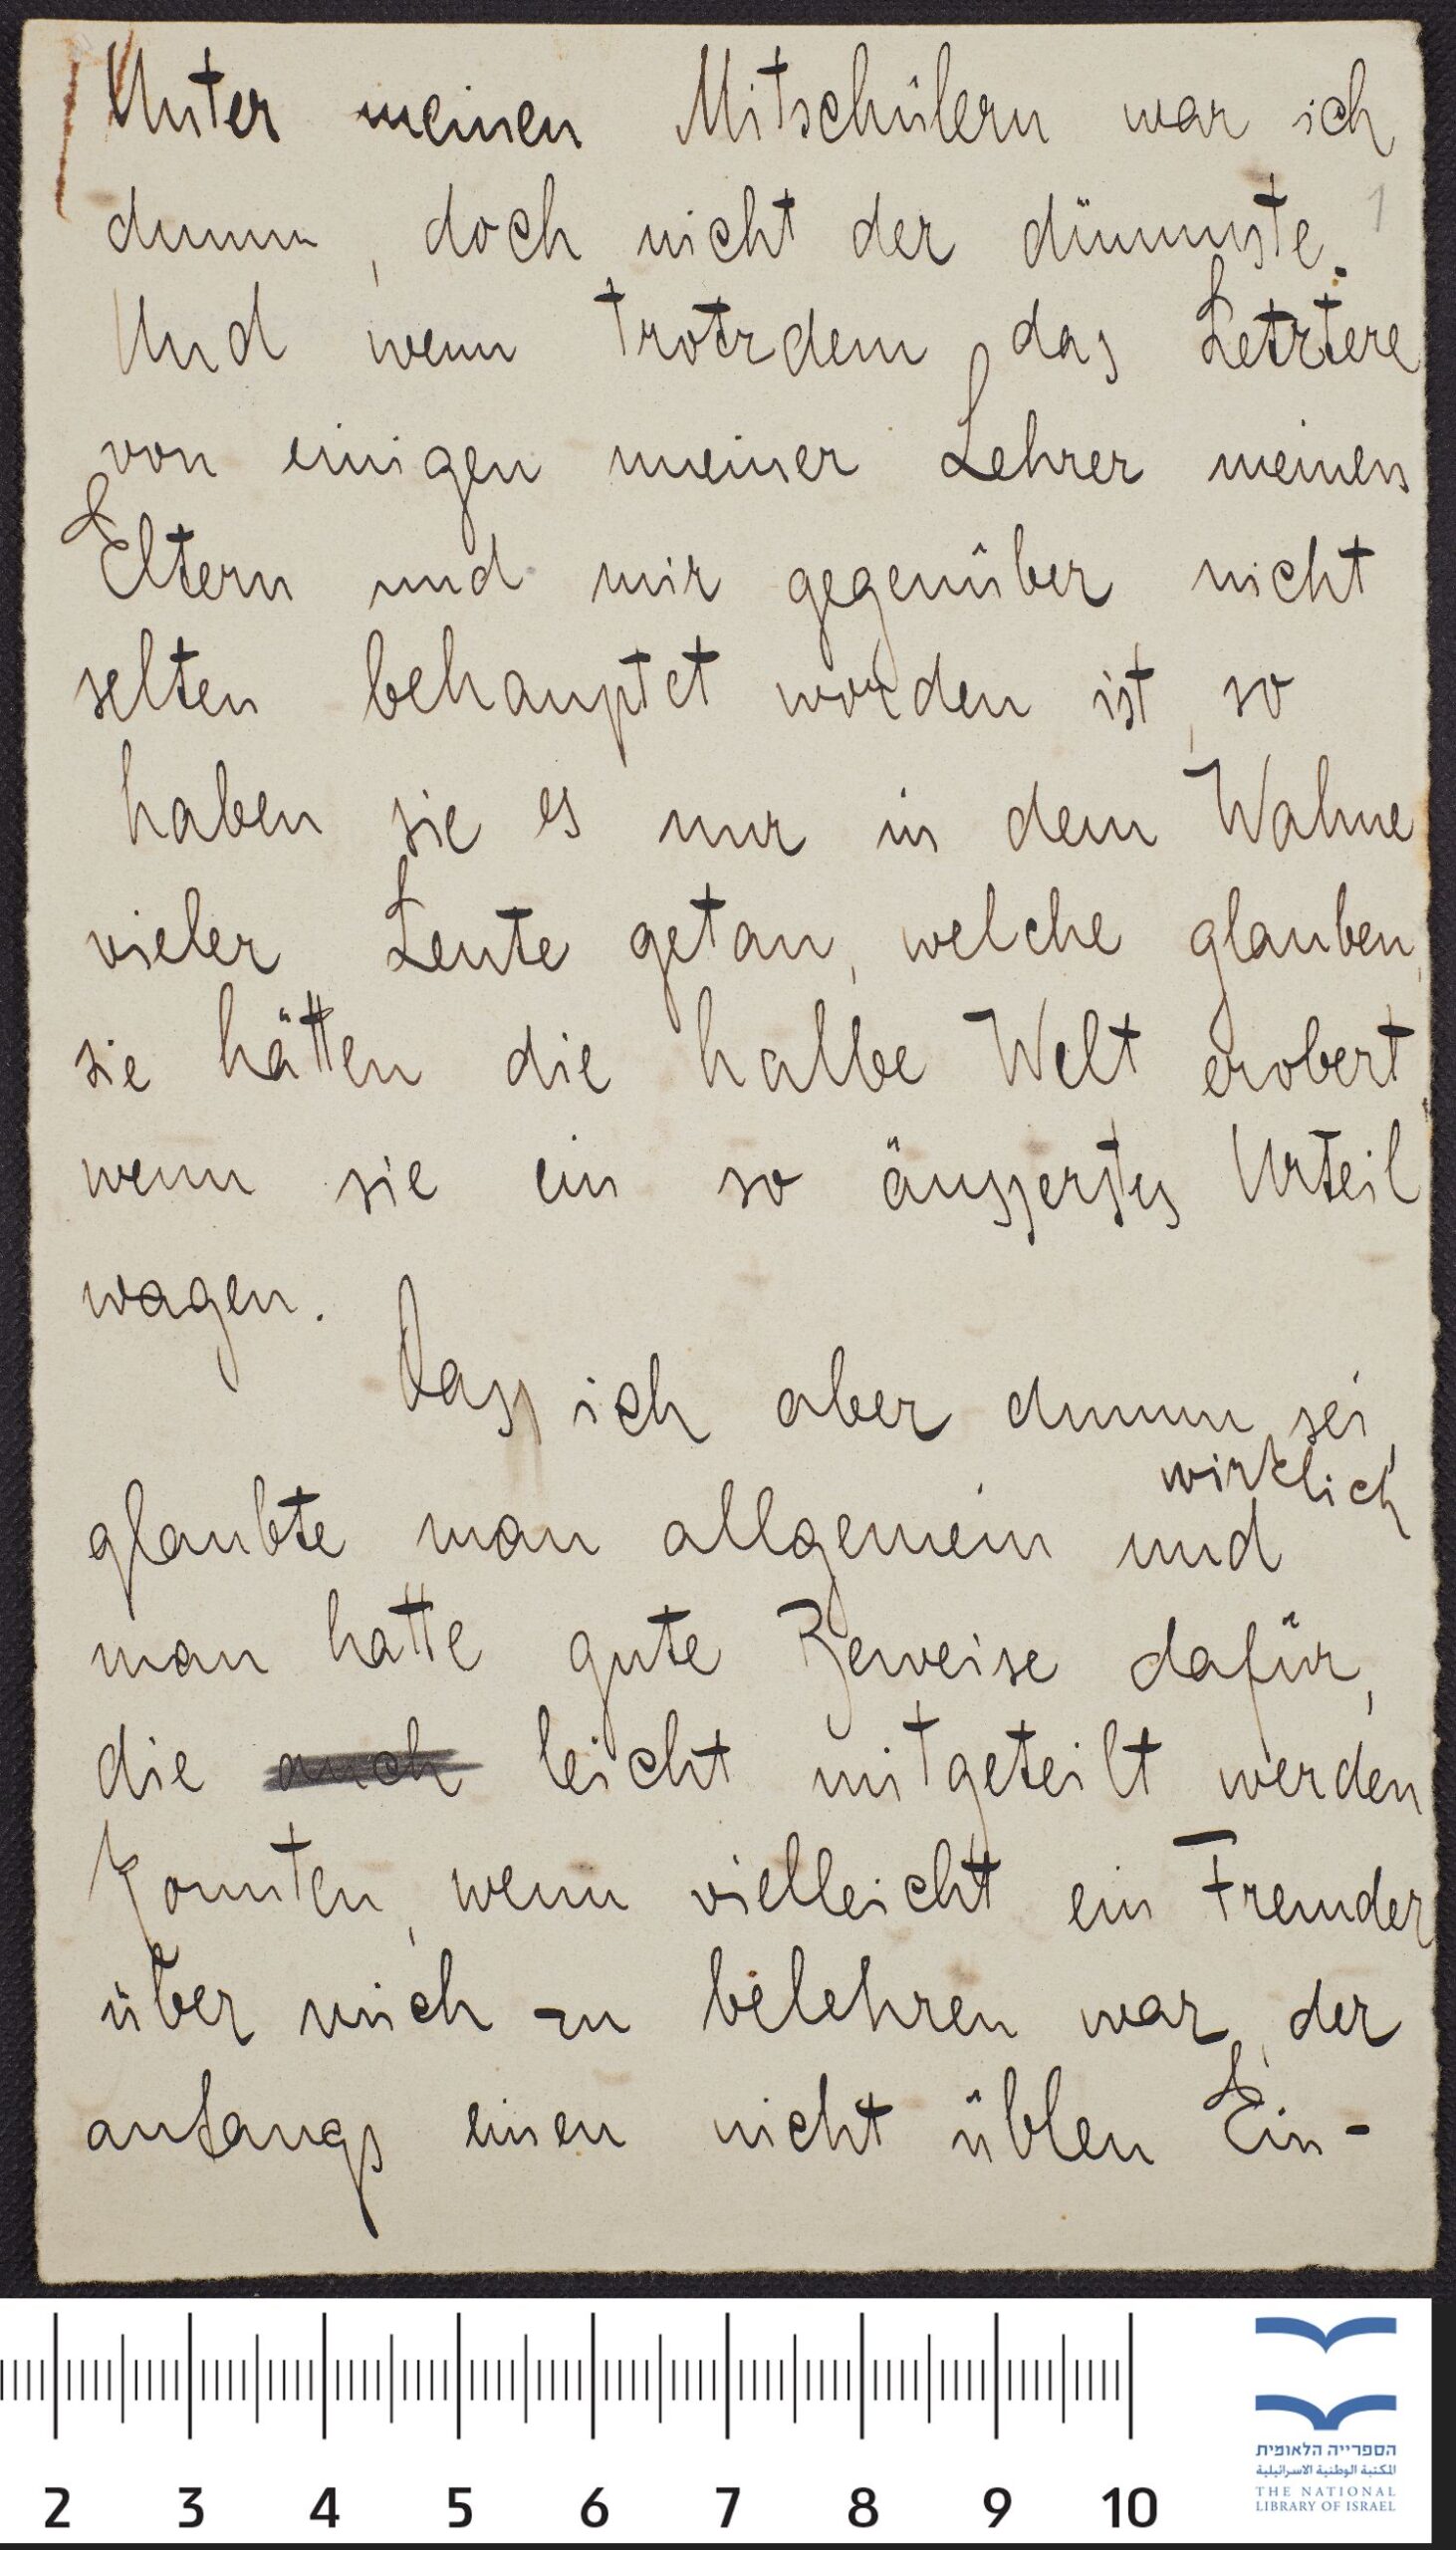 Unter meinen Mitschülern war ich
dumm, doch nicht der dümmste.
1
Und wenn trotzdem das Letztere
von einigen meiner Lehrer meinen
Eltern und mir gegenüber nicht
selten behauptet worden ist, so
haben sie es nur in dem Wahne
vieler Leute getan, welche glauben,
sie hätten die halbe Welt erobert
wenn sie ein so äusserstes Urteil
wagen.
Dass ich aber dumm sei,
wirklich
glaubte man allgemein und
man hatte gute Beweise dafür,
die auch leicht mitgeteilt werden
konnten, wenn vielleicht ein Fremder
über mich zu belehren war, der
anfangs einen nicht üblen Ein-
2 3 4 5 6 7 8 9 10
הספרייה הלאומית
المكتبة الوطنية الاسرائيلية
THE NATIONAL
LIBRARY OF ISRAEL